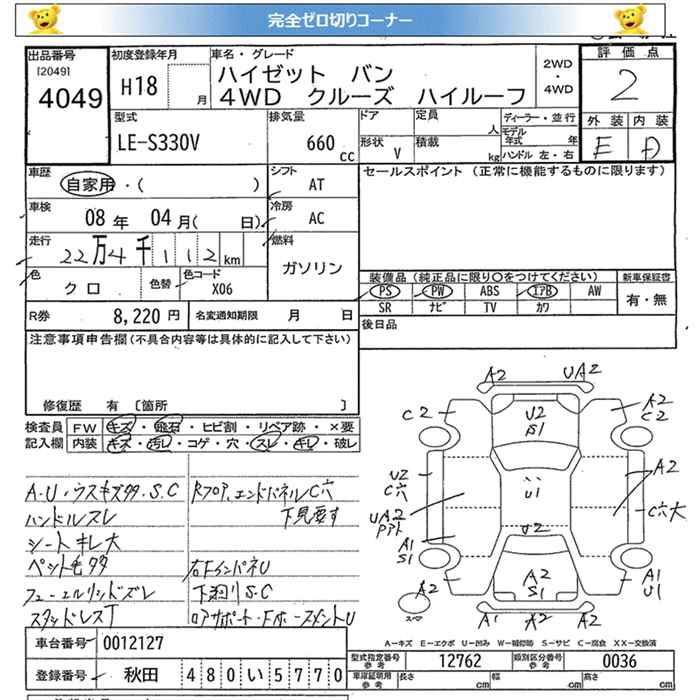 完全ゼロ切りコーナー
出品番号
[2049]
4049
初度登録年月
H18
月
車名・グレード
ハイゼット バン
4WD クルーズ ハイルーフ
2WD
・
4WD
評価点
2
外装 内装
E D
型式
LE-S330V
排気量
660 cc
ドア
形状 V
定員 人
積載 kg
ディーラー・並行
モデル年式 年
ハンドル 左・右
車歴
自家用・( )
シフト
AT
セールスポイント (正常に機能するものに限ります)
車検
08年 04月( 日)
冷房
AC
走行
22万4千112km
燃料
ガソリン
色
クロ
色替
色コード
X06
装備品 (純正品に限り○をつけてください)
PS PW ABS エアB AW
SR ナビ TV カワ
新車保証書
有・無
R券 8,220 円
名変通知期限 月 日
後日品
注意事項申告欄(不具合内容等は具体的に記入して下さい)
修復歴 有 [箇所 ]
検査員記入欄
FW キズ・飛石・ヒビ割・リペア跡・×要
内装 キズ・汚レ・コゲ・穴・スレ・キレ・破レ
A・U・ウスキズ多・S.C
ハンドルスレ
シートキレ大
ペット毛多
フューエルリッドズレ
スタッドレスT
Rフロア、エンドパネルC穴
下見要す
右FインパネU
下廻りS.C
コアサポート・FホースメントU
A2 UA2
C2
A2
C2
U2
S1
U2
C穴
U1
A2
UA2
C穴大
U2
A1
S1
A2
A2
S1
A1
U1
スペア
A1 A2 A2
A-キズ E-エクボ U-凹み W-補修跡 S-サビ C-腐食 XX-交換済
車台番号 0012127
登録番号 秋田 480い5770
型式指定番号
参考
12762
類別区分番号
参考
0036
車庫証明用
参考
長さ cm
幅 cm
高さ cm